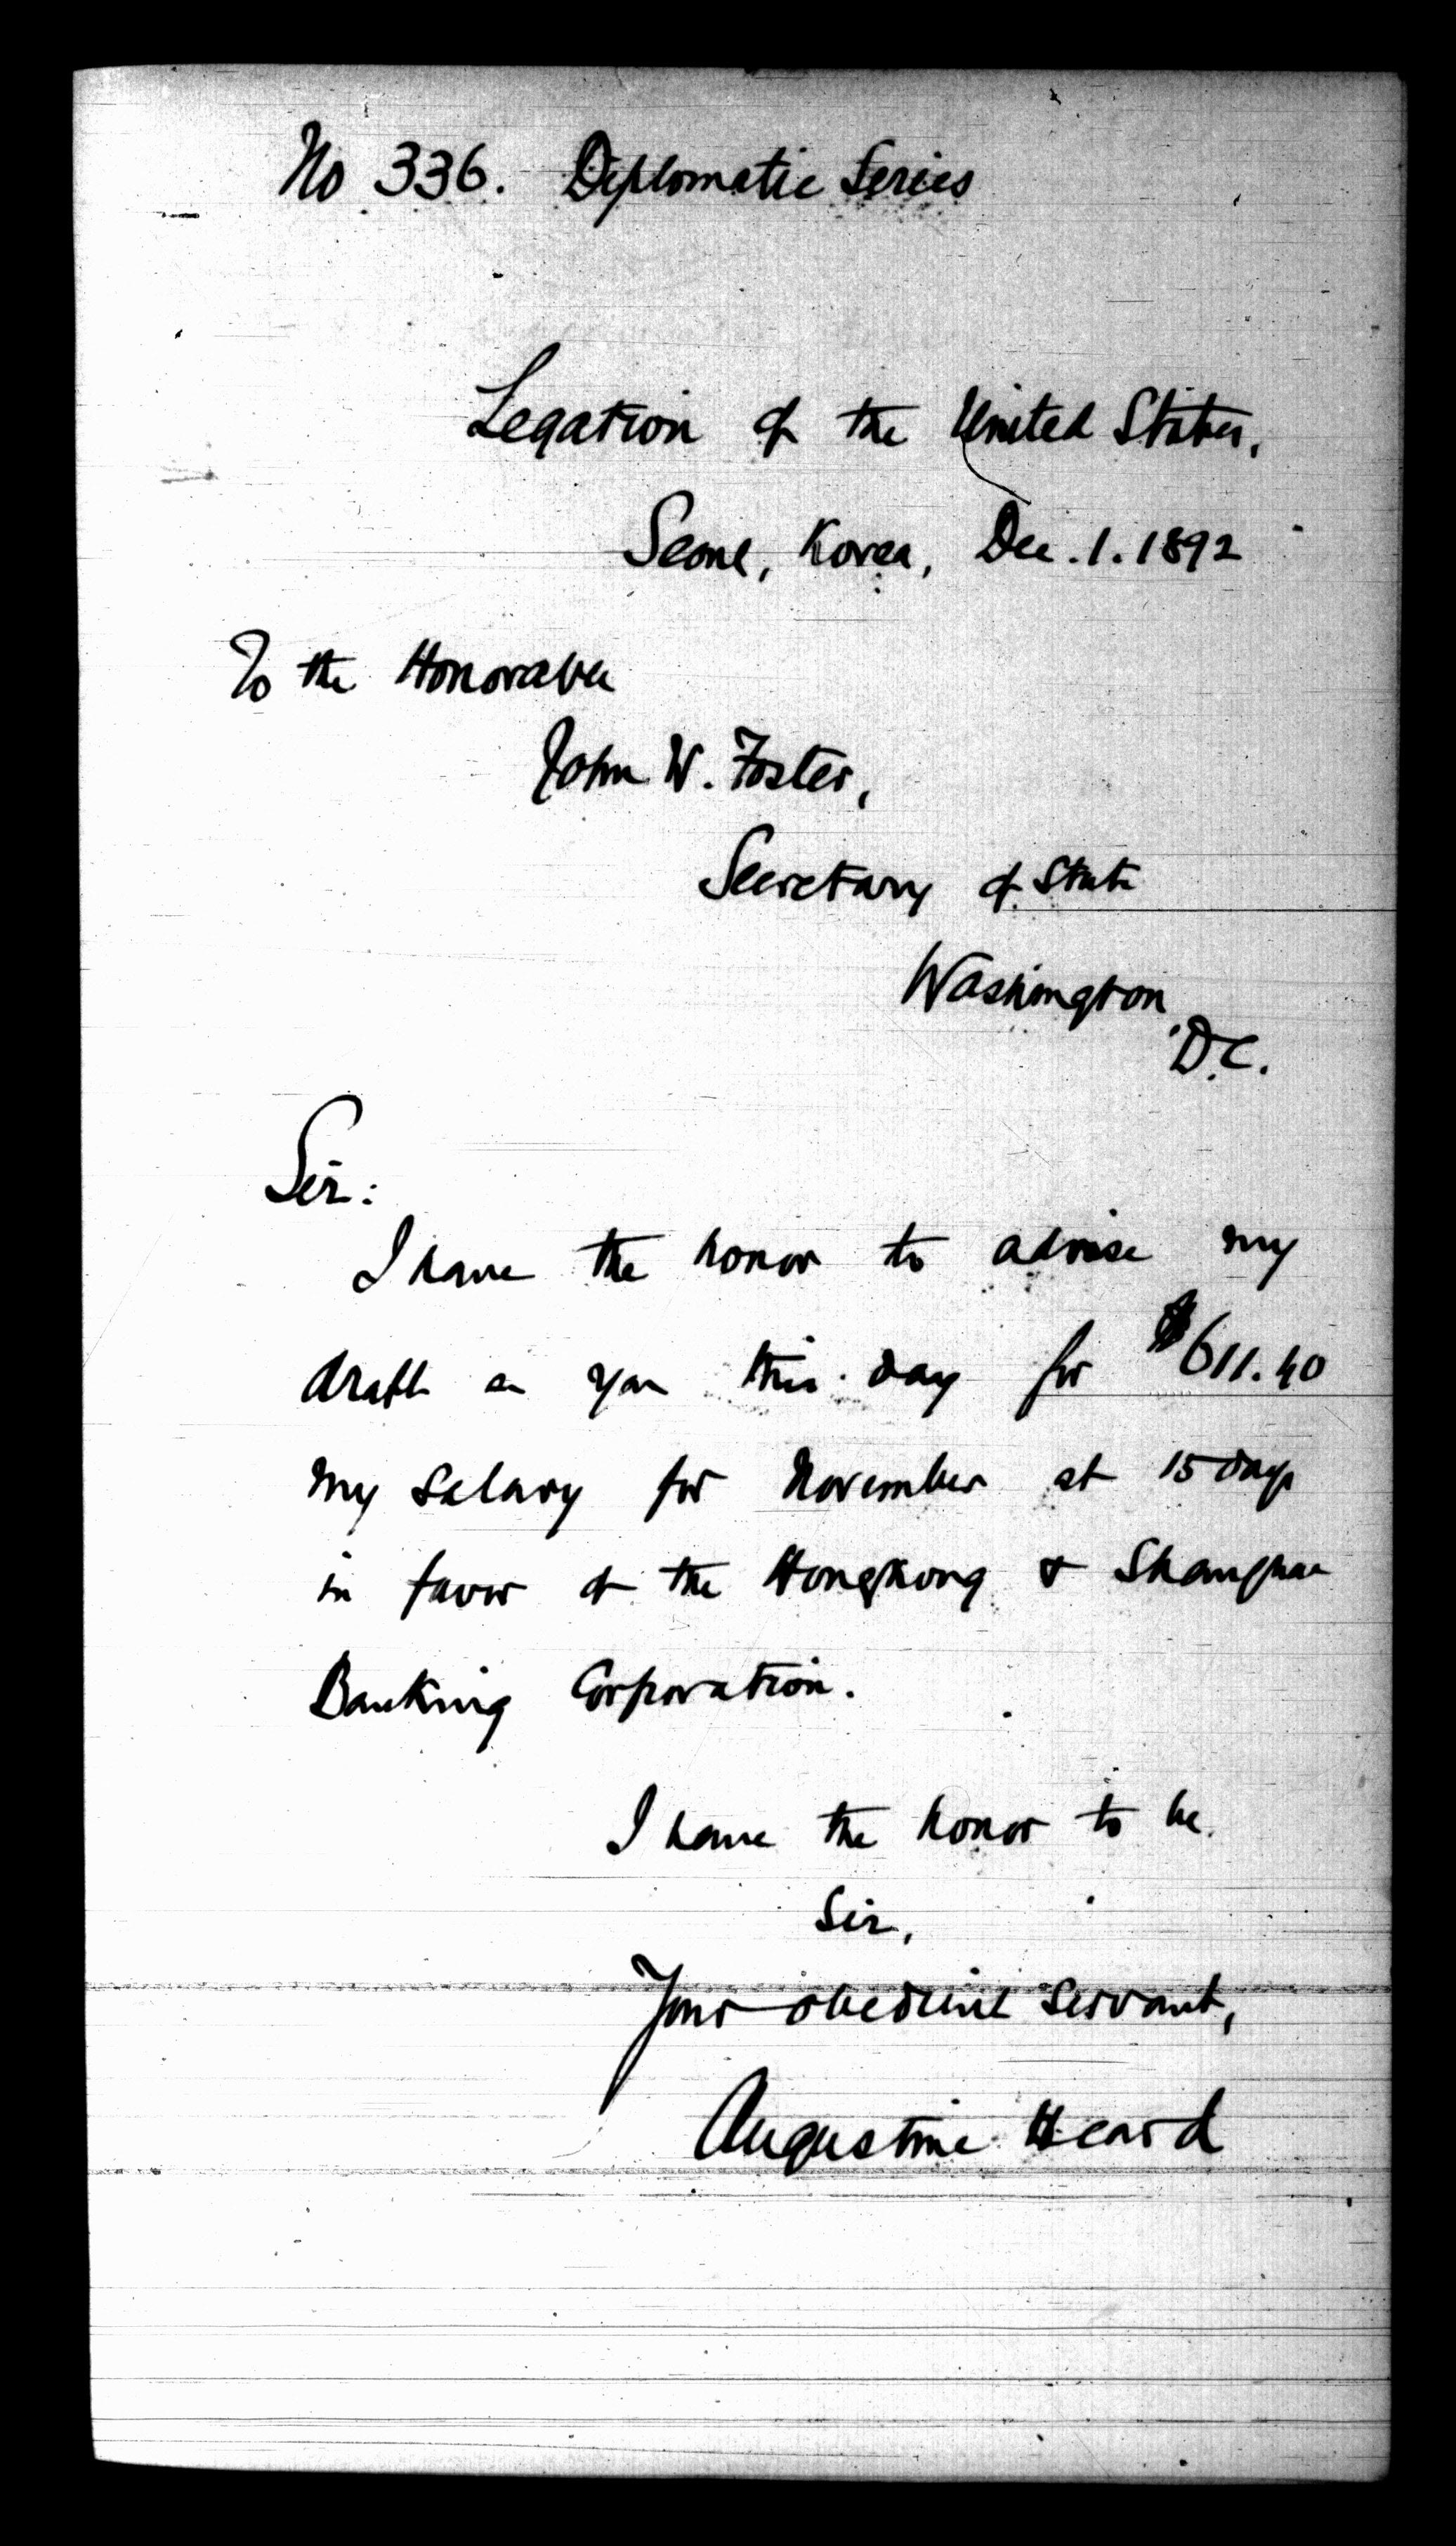 No 336. Diplomatic Series
Legation of the United States,
Seoul, Korea, Dec. 1. 1892
To the Honorable
John W. Foster,
Secretary of State
Washington,
D.C.
Sir:
I have the honor to advise my
draft on you this day for $611.40
my salary for November at 15 days
in favor of the Hongkong & Shanghai
Banking Corporation.
I have the honor to be
Sir,
Your obedient servant,
Augustine Heard